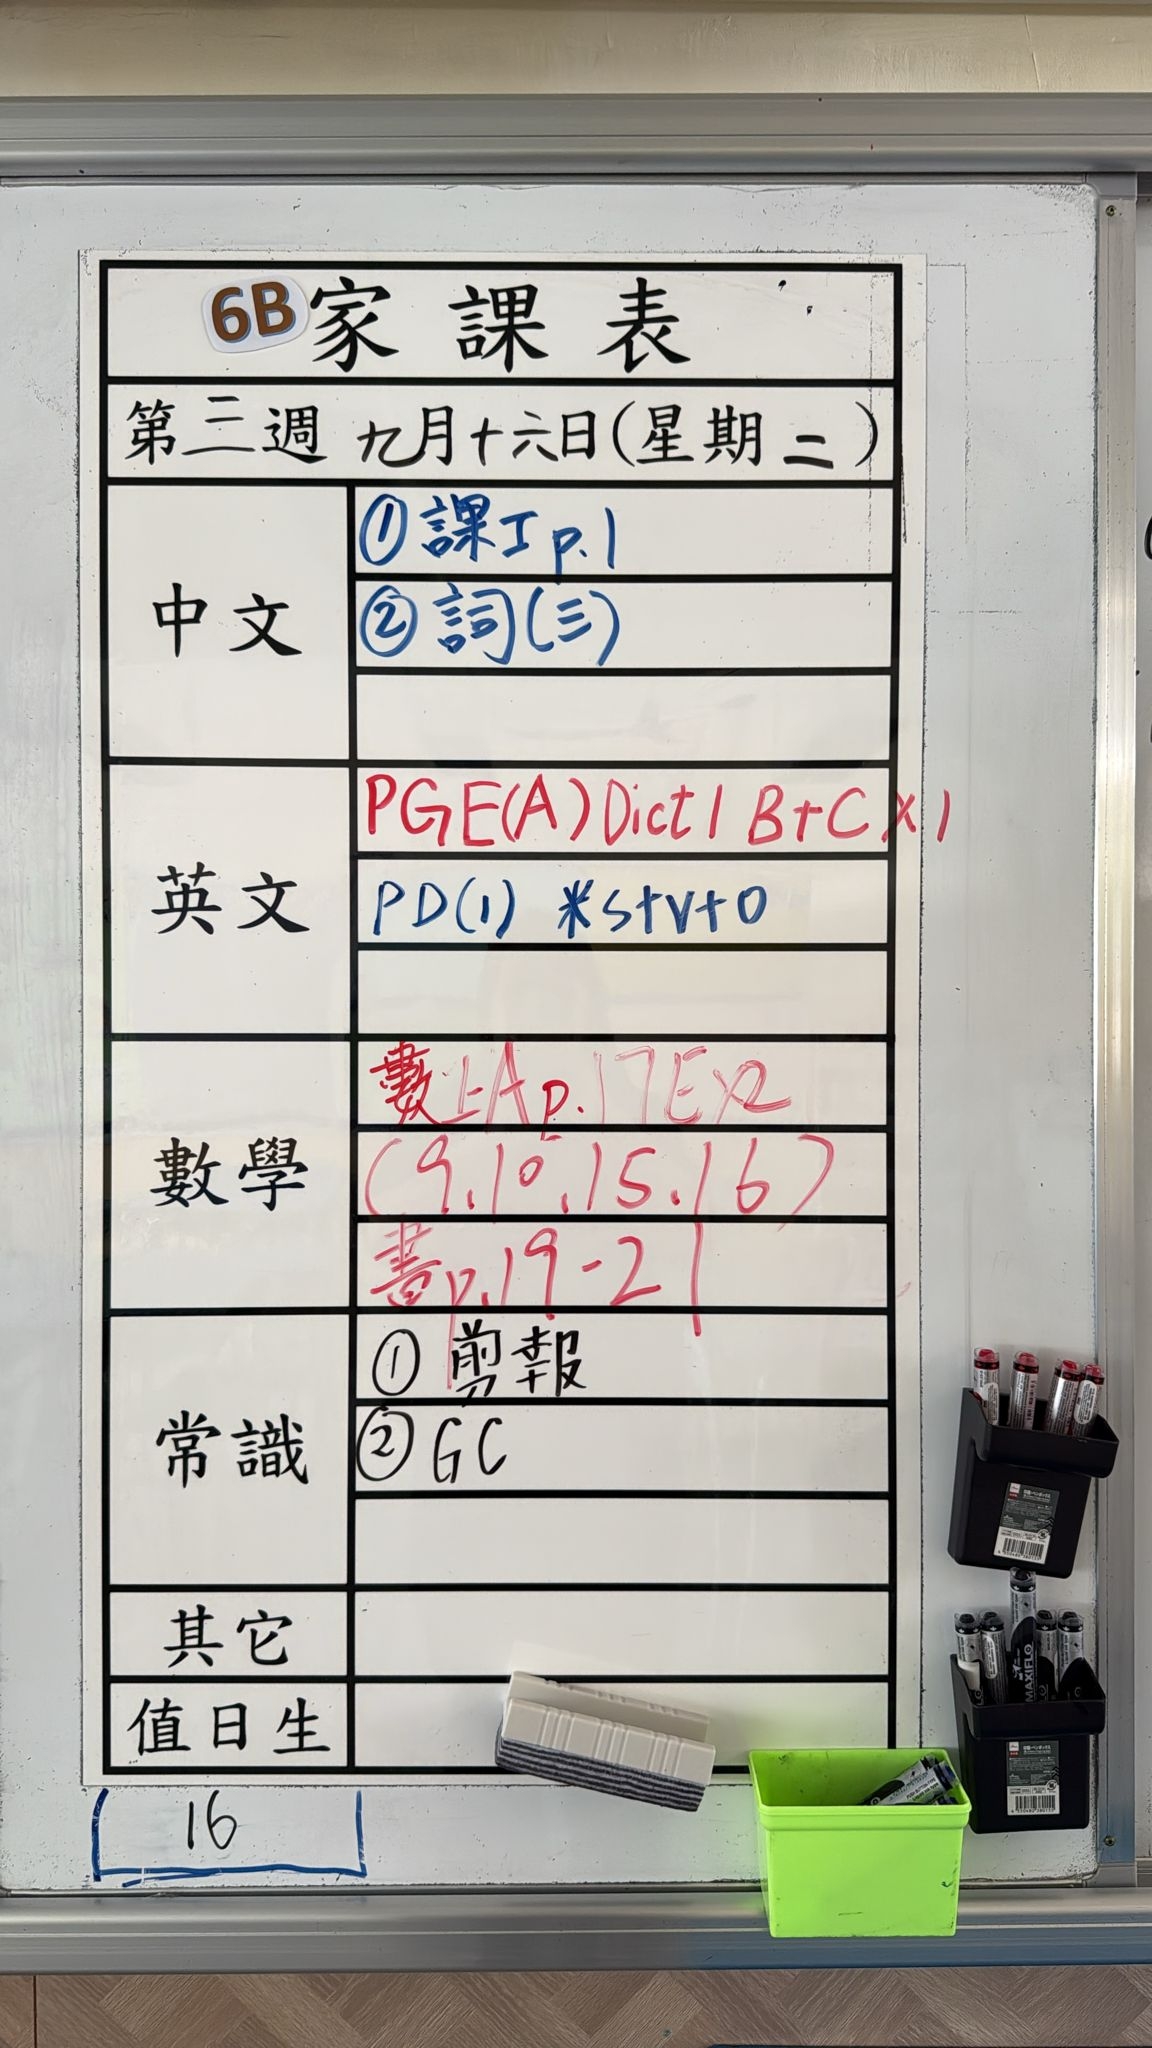 6B 家課表
第三週 九月十六日(星期二)
中文
①課工 p.1
②詞(三)
英文
PGE(A) Dict 1 B+C x 1
PD(1) *s+v+o
數學
數上A p.17 Ex2
(9.10.15.16)
書 p.19-21
常識
① 剪報
② GC
其它
值日生
16
MAXIFLO